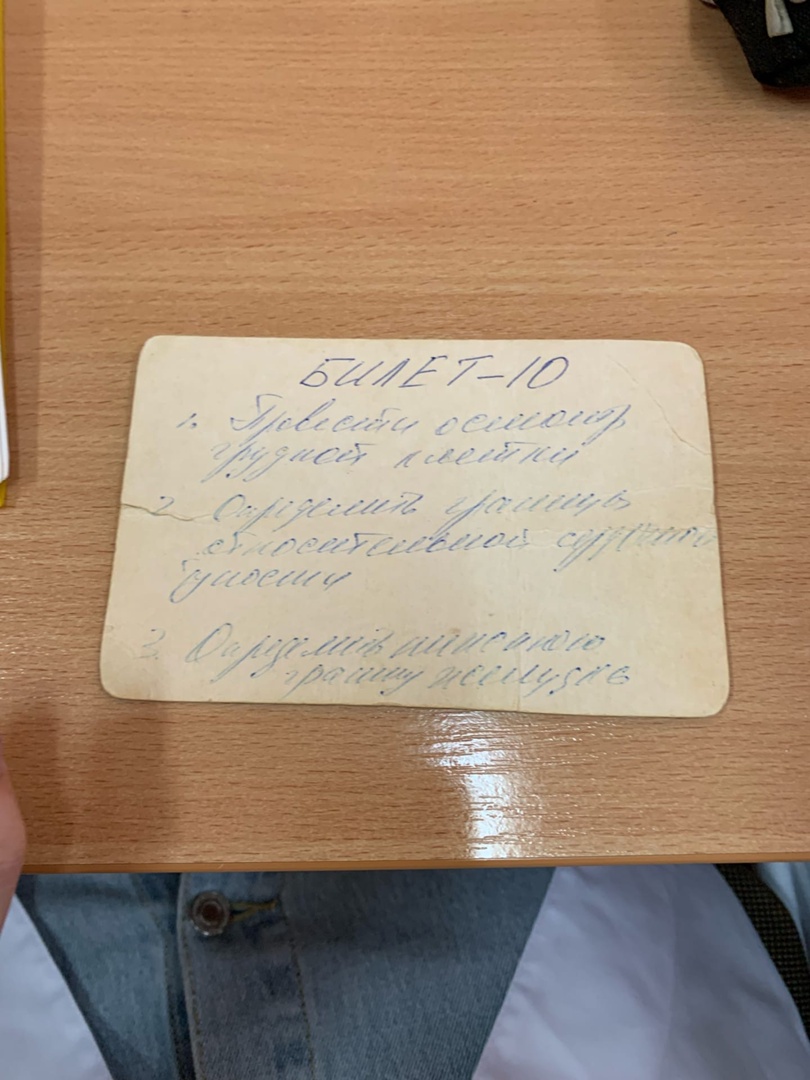 БИЛЕТ-10
1. Провести осмотр
грудной клетки
2. Определить границы
относительной сердечной
тупости
3. Определить нижнюю
границу желудка